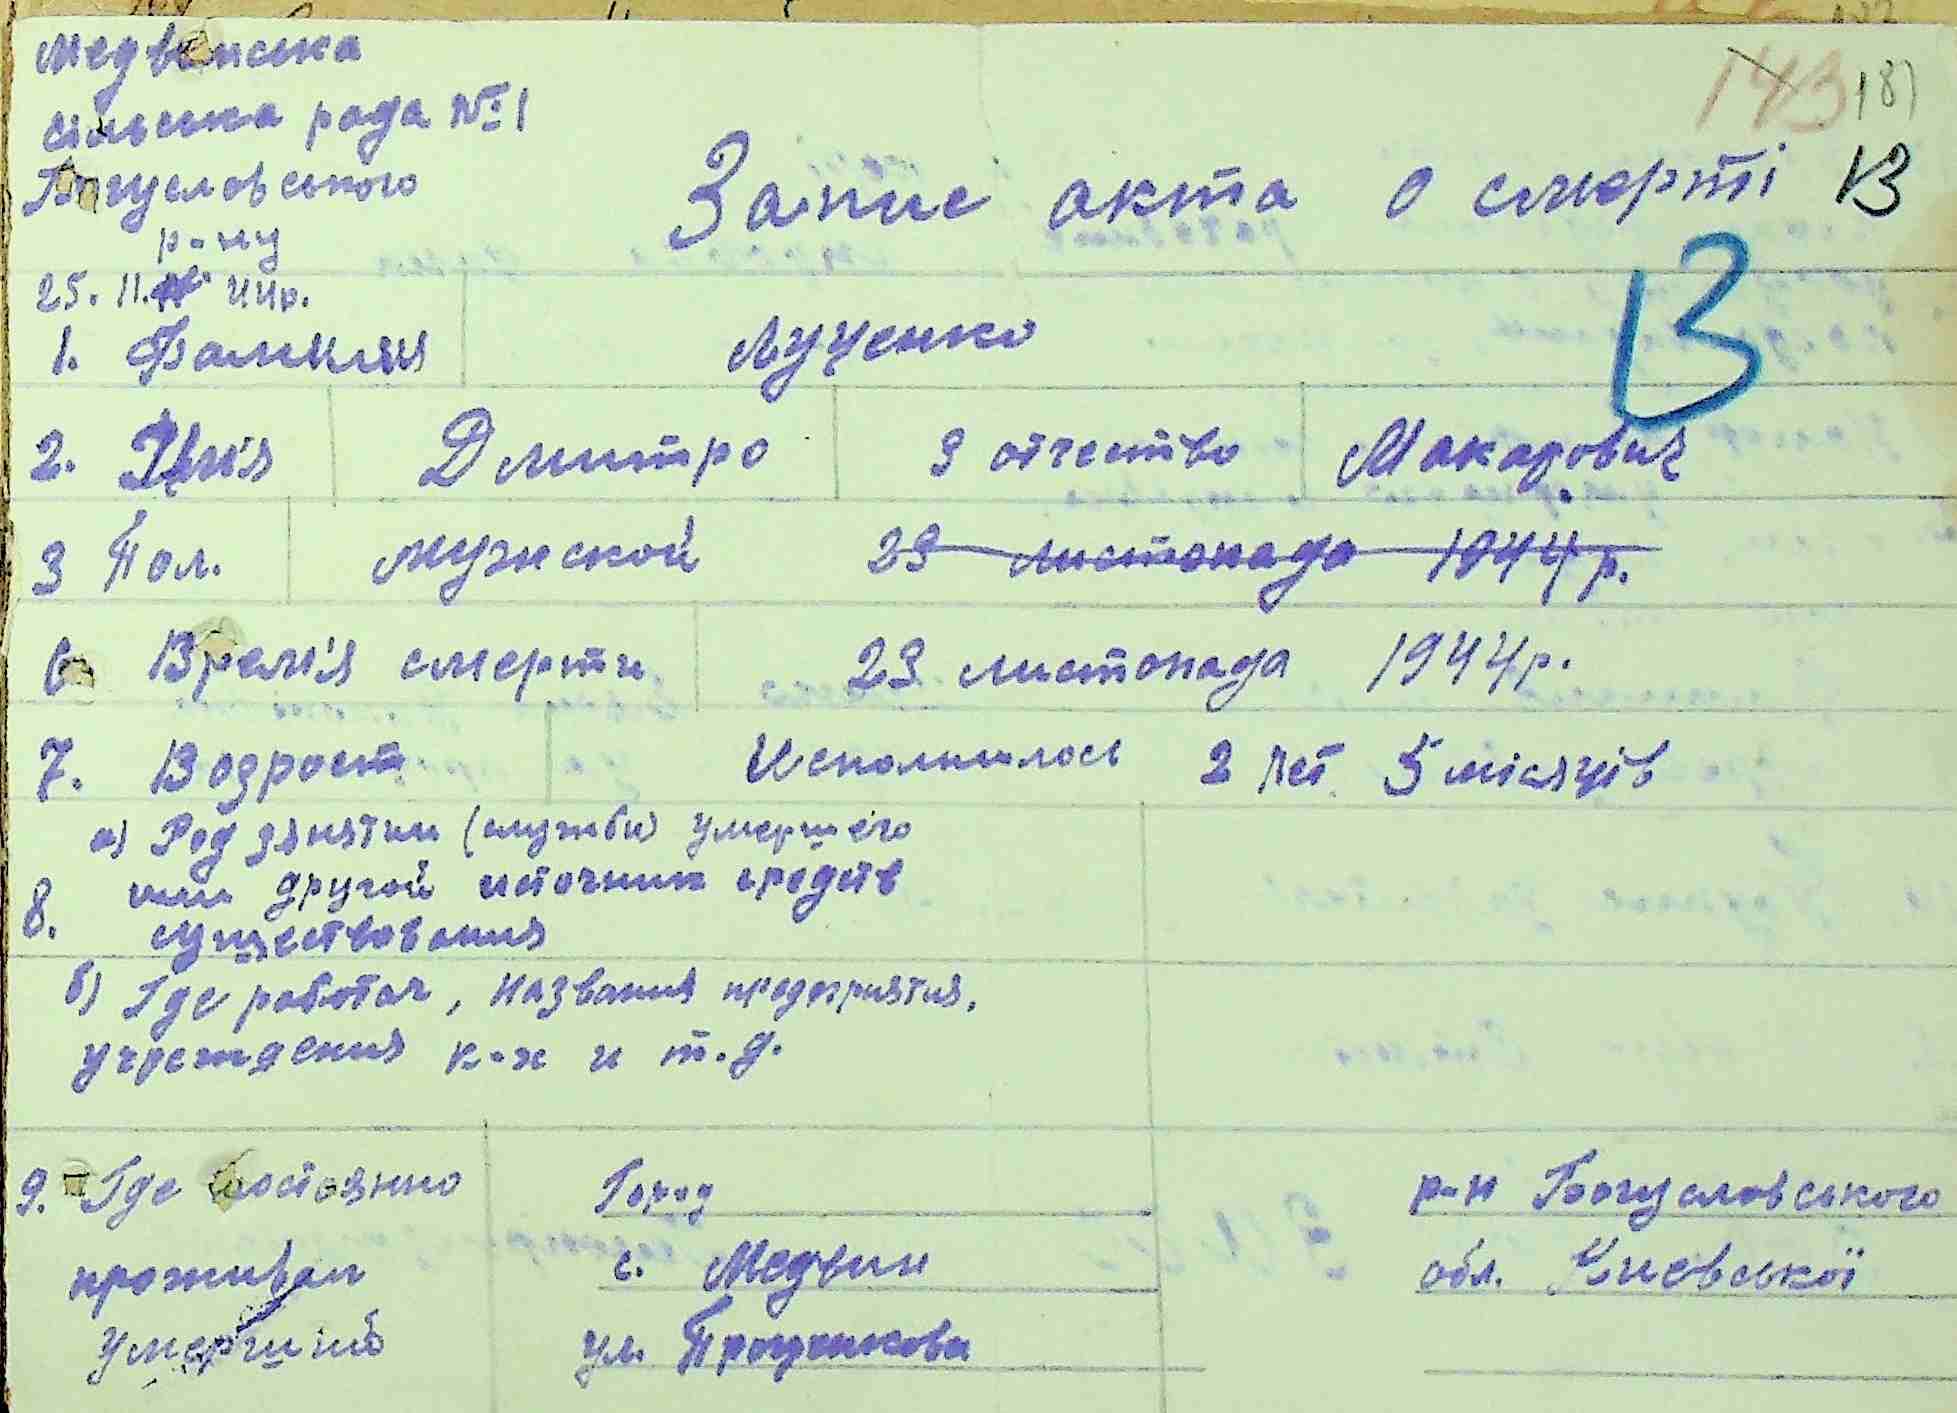 Медвинська
сільська рада №1
Богуславського
р-ну
143 187
Запис акта о смерті 13
25. 11. 44р.
13
1. Фамилия Луценко
2. Імья Дмитро 3 отчество Макарович
3 Пол. мужской 23 листопада 1944 р.
6 Времья смерти 23 листопада 1944р.
7. Возрост Исполнилось 2 лет 5 місяців
8. а) Род занятии (службы) умершего
или другой источник средств
существования
б) Где работал, названия предприятия,
учреждения к-х и т.д.
9. Где постоянно Город р-н Богуславського
проживал с. Медвин обл. Киевської
умерший ул.